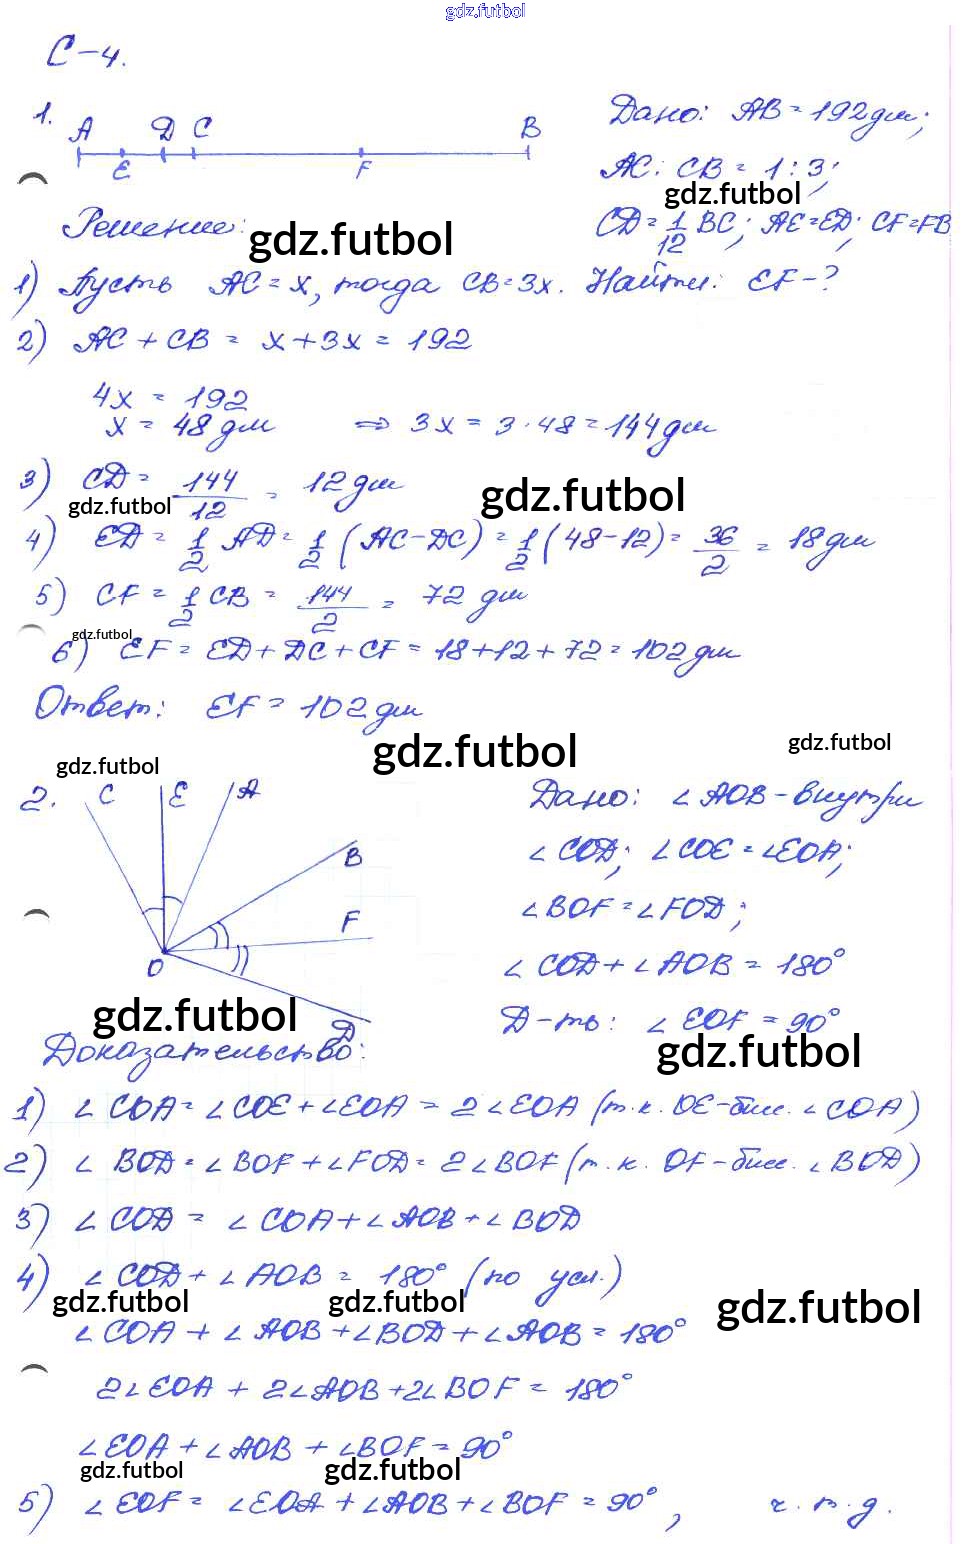 gdz.futbol
С-4.
1.
A E D C F B
Дано: AB = 192 дм;
AC : CB = 1 : 3;
gdz.futbol
CD = 1/12 BC; AE = ED; CF = FB
Решение:
gdz.futbol
1) Пусть AC = x, тогда CB = 3x. Найти: EF - ?
2) AC + CB = x + 3x = 192
4x = 192
x = 48 дм ⇒ 3x = 3 · 48 = 144 дм
3) CD = 144/12 = 12 дм
gdz.futbol gdz.futbol
4) ED = 1/2 AD = 1/2 (AC - DC) = 1/2 (48 - 12) = 36/2 = 18 дм
5) CF = 1/2 CB = 144/2 = 72 дм
gdz.futbol
6) EF = ED + DC + CF = 18 + 12 + 72 = 102 дм
Ответ: EF = 102 дм
gdz.futbol gdz.futbol gdz.futbol
2.
C E A B F O D
Дано: ∠AOB - внутри
∠COD; ∠COE = ∠EOA;
∠BOF = ∠FOD;
∠COD + ∠AOB = 180°
Д-ть: ∠EOF = 90°
gdz.futbol gdz.futbol
Доказательство:
1) ∠COA = ∠COE + ∠EOA = 2∠EOA (т.к. OE - бис. ∠COA)
2) ∠BOD = ∠BOF + ∠FOD = 2∠BOF (т.к. OF - бисс. ∠BOD)
3) ∠COD = ∠COA + ∠AOB + ∠BOD
4) ∠COD + ∠AOB = 180° (по усл.)
gdz.futbol gdz.futbol gdz.futbol
∠COA + ∠AOB + ∠BOD + ∠AOB = 180°
2∠EOA + 2∠AOB + 2∠BOF = 180°
∠EOA + ∠AOB + ∠BOF = 90°
gdz.futbol gdz.futbol
5) ∠EOF = ∠EOA + ∠AOB + ∠BOF = 90°, ч.т.д.